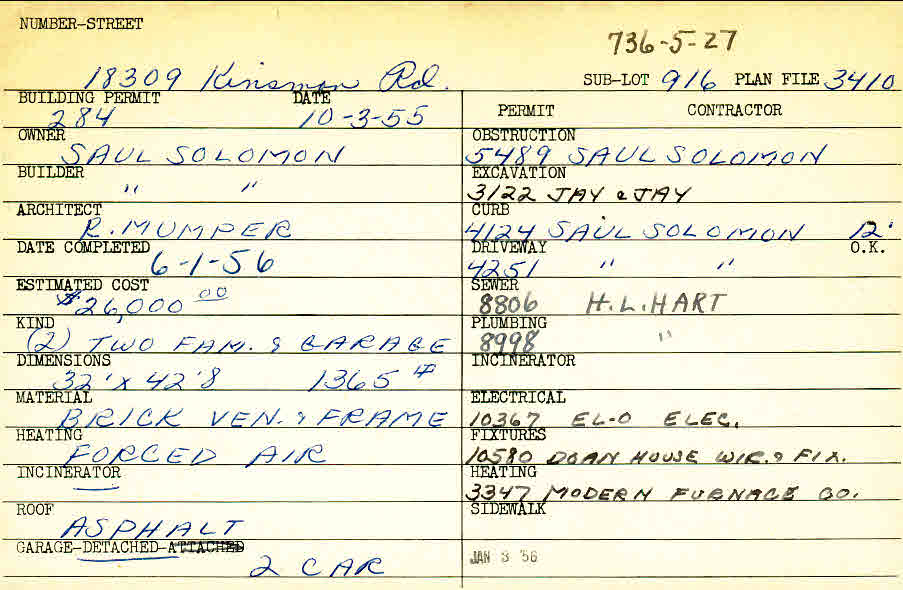 NUMBER-STREET
736-5-27
18309 Kinsman Rd.
SUB-LOT 916 PLAN FILE 3410
BUILDING PERMIT DATE
284 10-3-55
OWNER
SAUL SOLOMON
BUILDER
" "
ARCHITECT
R. MUMPER
DATE COMPLETED
6-1-56
ESTIMATED COST
$26,000 00
KIND
(2) TWO FAM. & GARAGE
DIMENSIONS
32' X 42'8 1365 #
MATERIAL
BRICK VEN. & FRAME
HEATING
FORCED AIR
INCINERATOR
—
ROOF
ASPHALT
GARAGE-DETACHED-ATTACHED
2 CAR
PERMIT CONTRACTOR
OBSTRUCTION
5489 SAUL SOLOMON
EXCAVATION
3122 JAY & JAY
CURB
4124 SAUL SOLOMON 12'
DRIVEWAY O.K.
4251 " "
SEWER
8806 H.L. HART
PLUMBING
8998 "
INCINERATOR
ELECTRICAL
10367 EL-O ELEC.
FIXTURES
10580 DOAN HOUSE WIR. & FIX.
HEATING
3347 MODERN FURNACE CO.
SIDEWALK
JAN 3 56